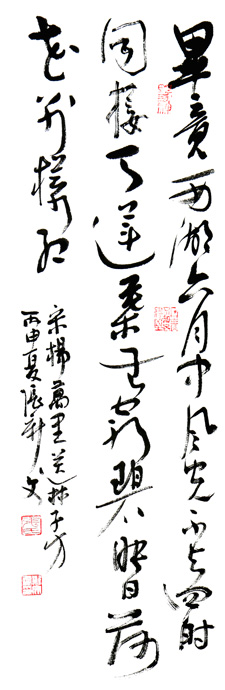 畢竟西湖六月中風光不与四時
同接天蓮葉無窮碧映日荷
花别樣紅
宋楊萬里送林子方
丙申夏張文